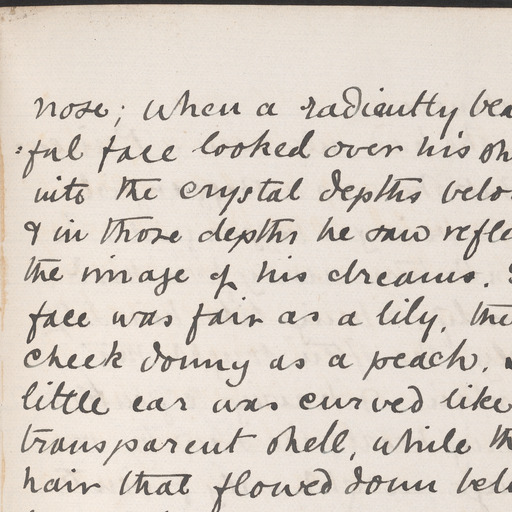 nose; when a radiantly bea
:ful face looked over his sh
into the crystal depths belo
& in those depths he saw refle
the image of his dreams.
face was fair as a lily, the
cheek downy as a peach,
little ear was curved like
transparent shell, while th
hair that flowed down belo